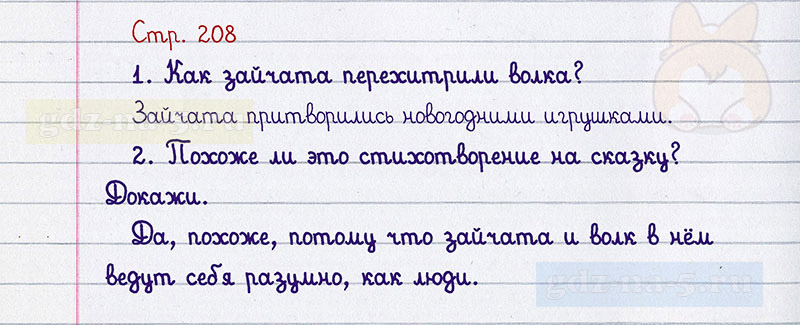 Стр. 208
1. Как зайчата перехитрили волка?
Зайчата притворились новогодними игрушками.
2. Похоже ли это стихотворение на сказку?
Докажи.
Да, похоже, потому что зайчата и волк в нём
ведут себя разумно, как люди.
gdz-na-5.ru
gdz-na-5.ru